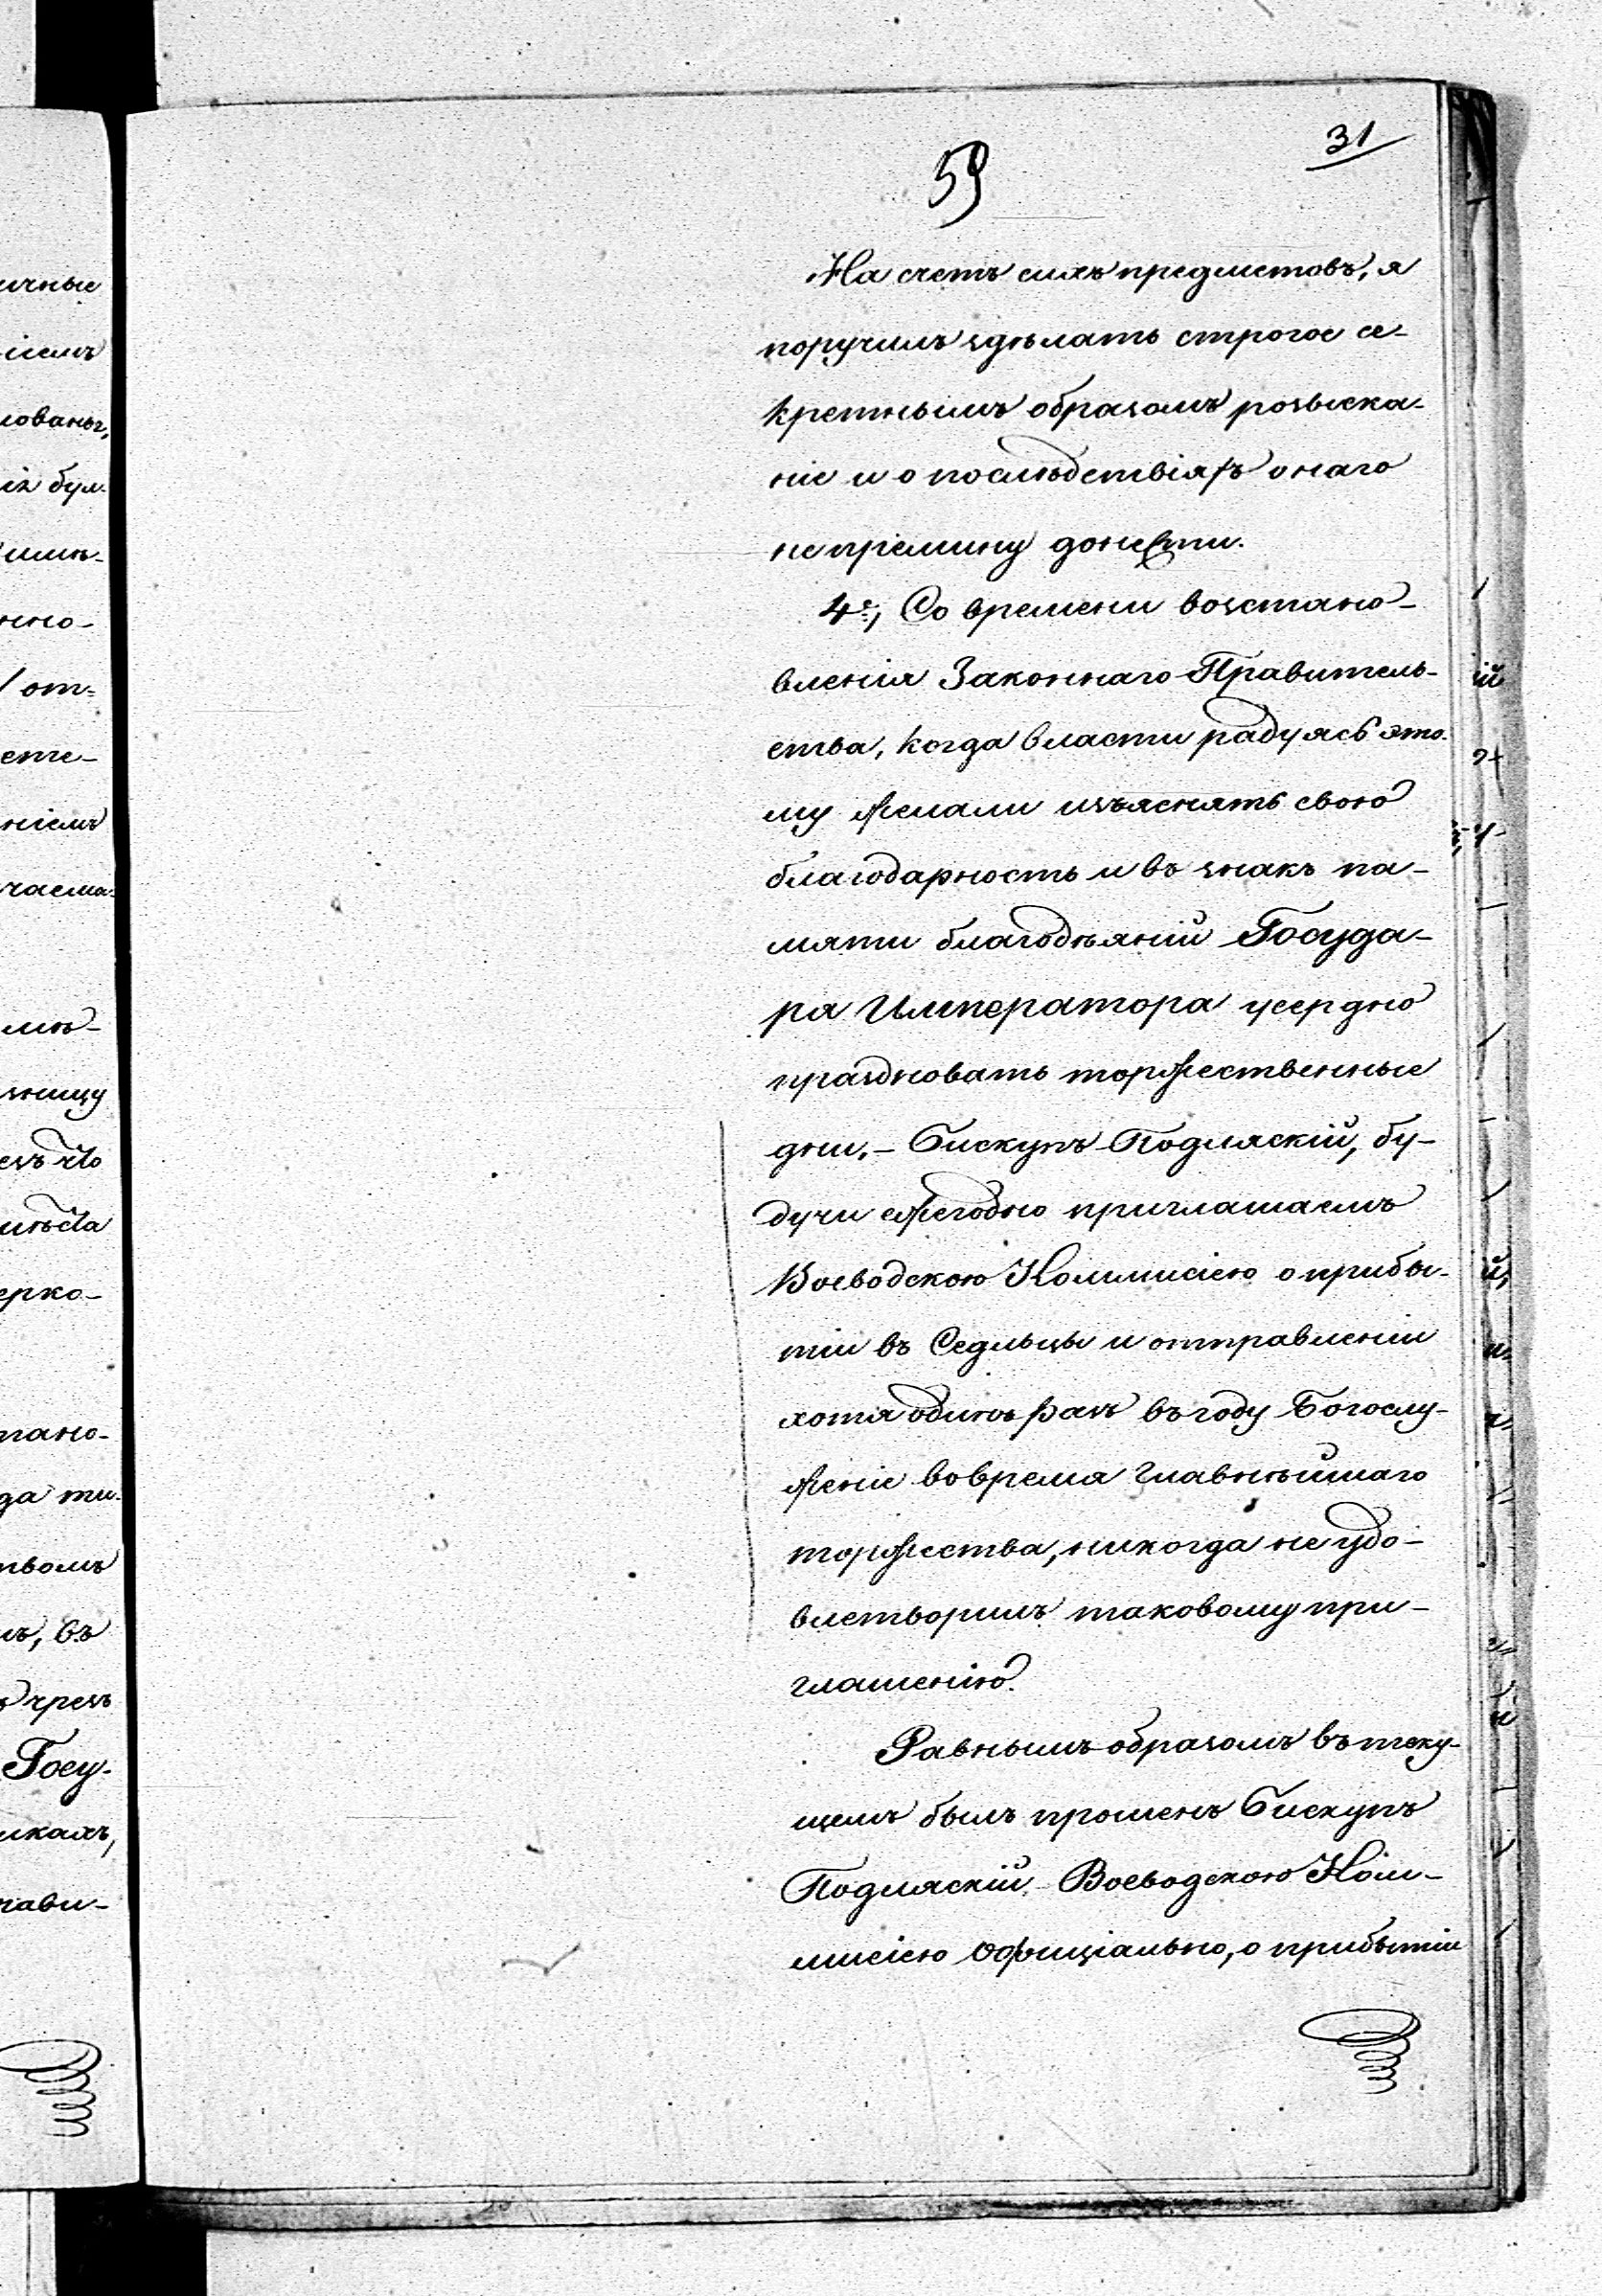 31
59
На счетъ сихъ предметовъ, я
поручилъ здѣлать строгое се-
кретнымъ образомъ розыска-
ніе и о послѣдствіяхъ онаго
не премину донести.
4е, Со времени возстано-
вленія Законнаго Правитель-
ства, когда власти радуясь это-
му желали изъяснять свою
благодарность и въ знакъ па-
мяти благодѣяній Госуда-
ря Императора усердно
праздновать торжественные
дни, - Бискупъ Подляскій, бу-
дучи ежегодно приглашаемъ
Воеводскою Коммисіею о прибы-
тіи въ Седльцы и отправленіи
хотя одинъ разъ въ году Богослу-
женіе во время главнѣйшаго
торжества, никогда не удо-
влетворилъ таковому при-
глашенію.
Равнымъ образомъ въ теку-
щемъ былъ прошенъ Бискупъ
Подляскій Воеводскою Ком-
мисіею оффиціально, о прибытіи